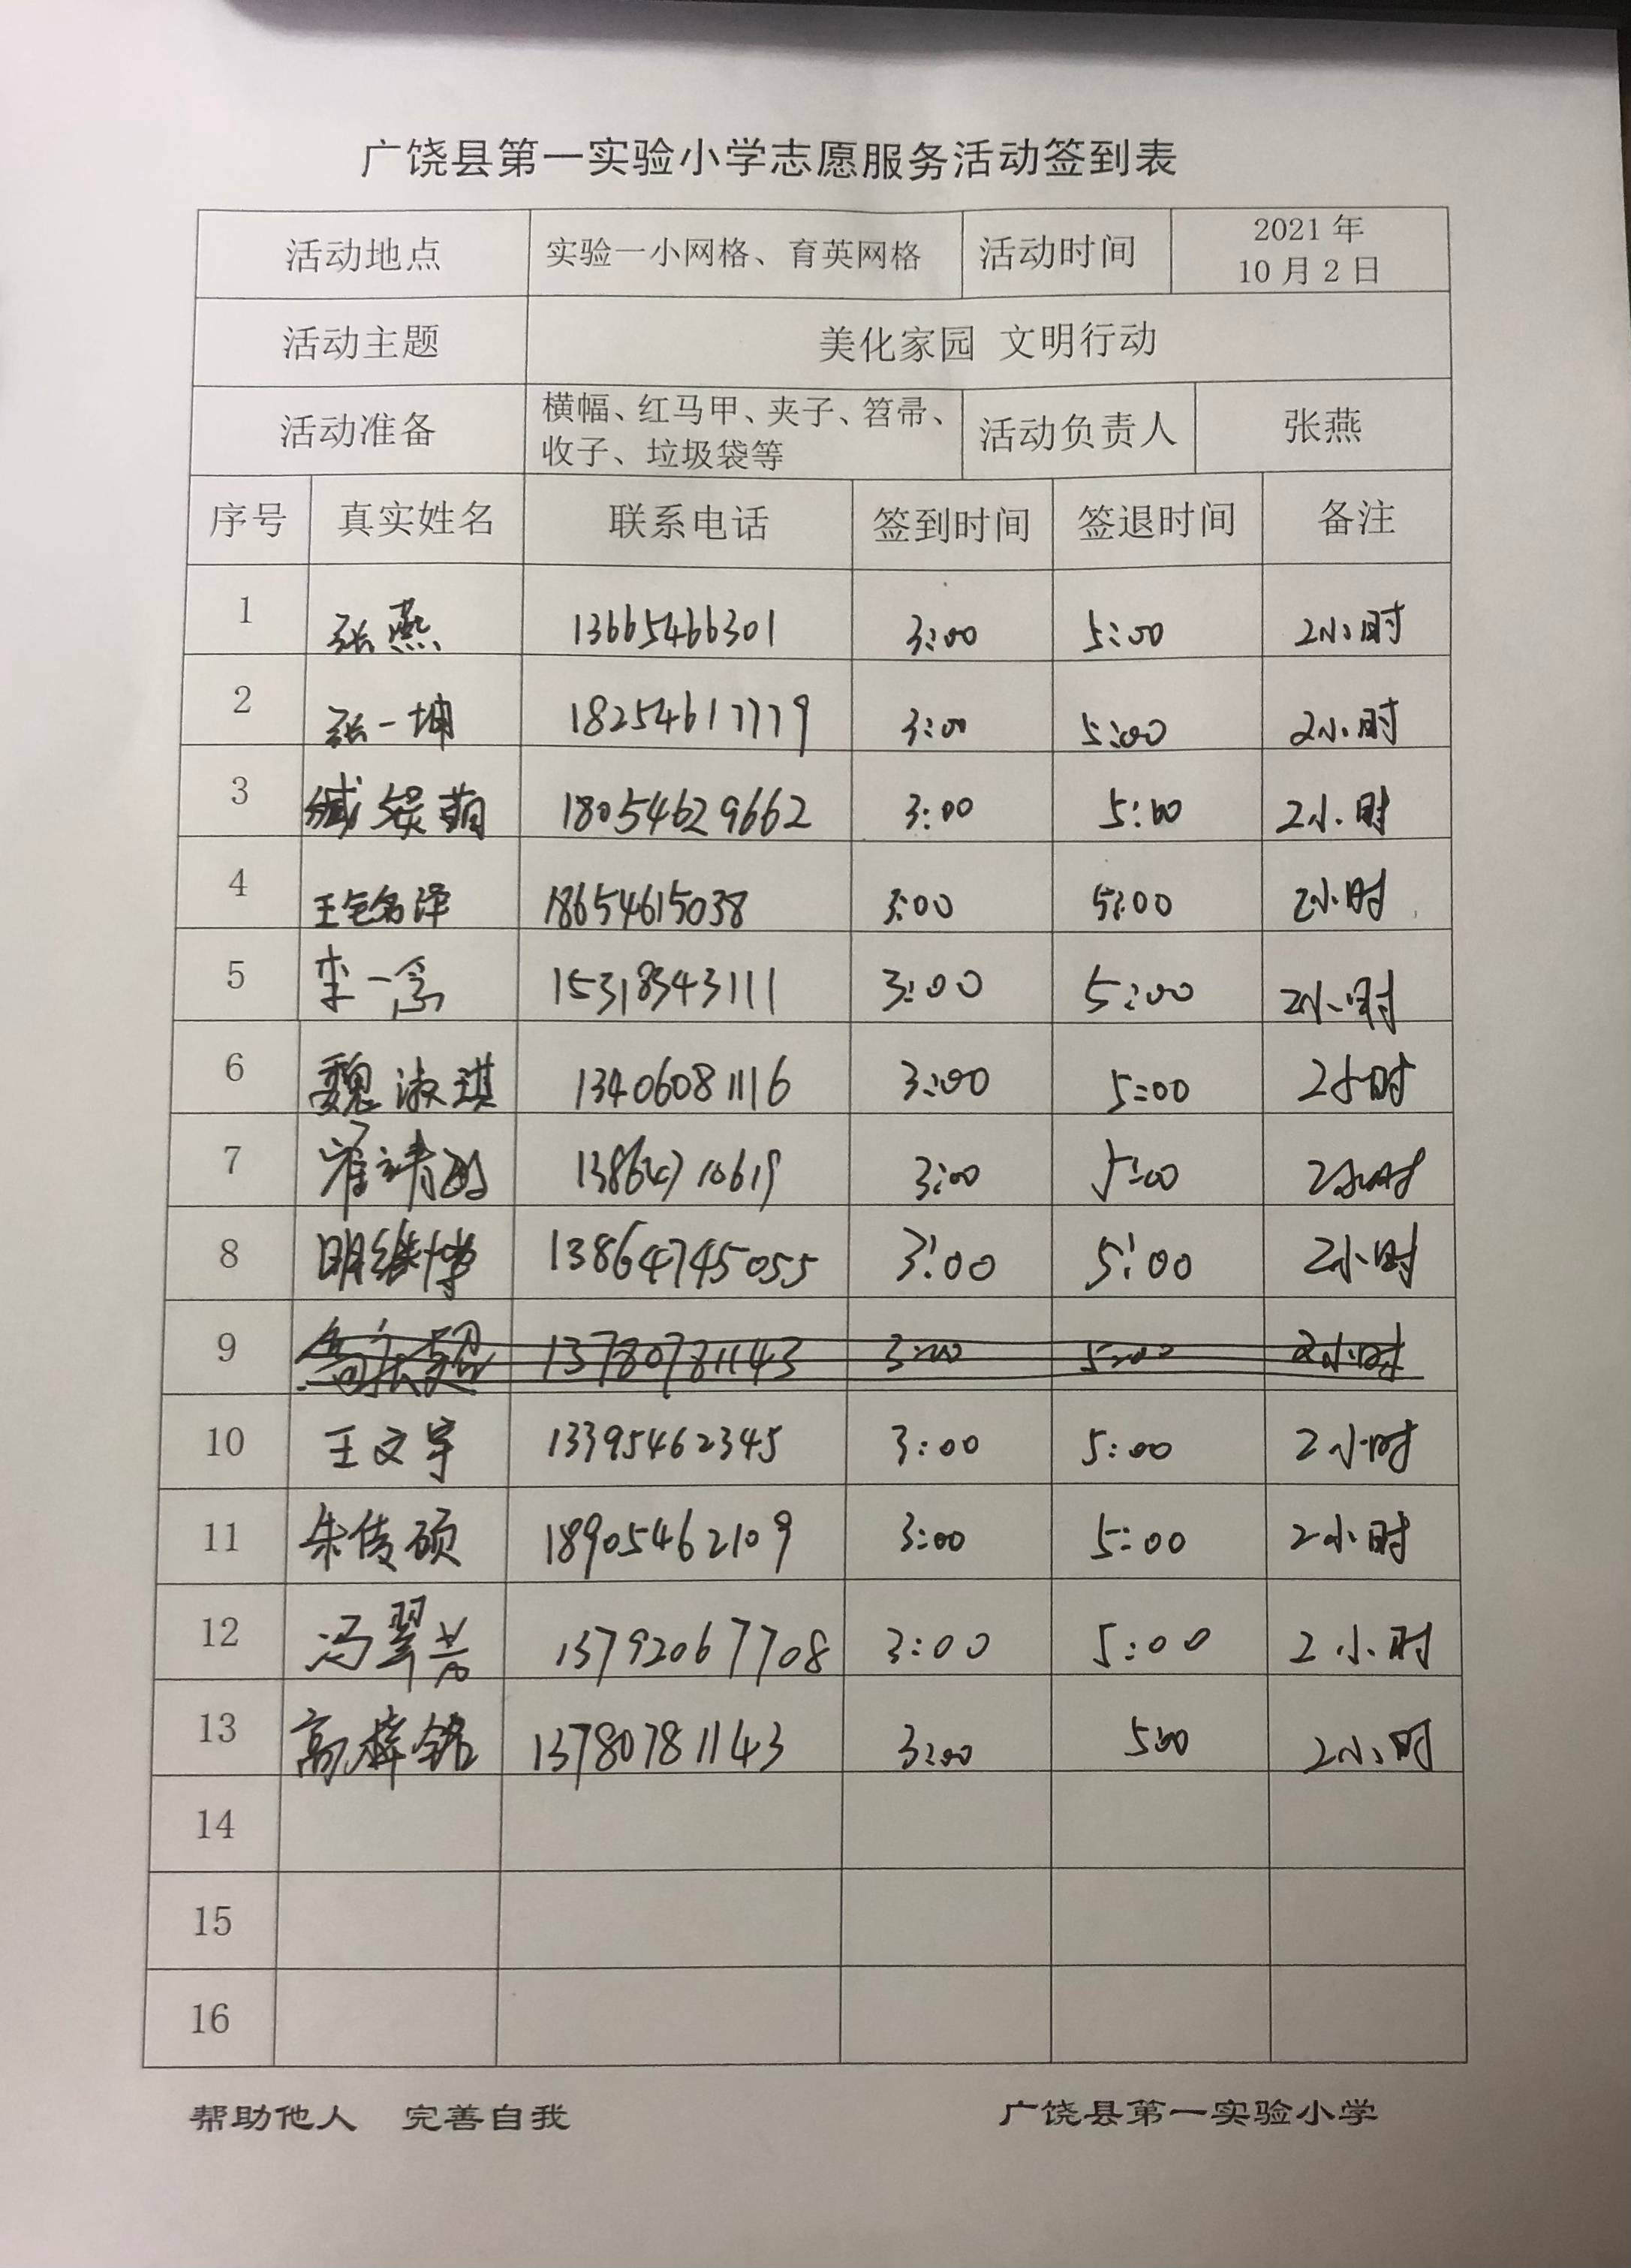 广饶县第一实验小学志愿服务活动签到表
活动地点 实验一小网格、育英网格 活动时间 2021 年
10 月 2 日
活动主题 美化家园 文明行动
活动准备 横幅、红马甲、夹子、笤帚、
收子、垃圾袋等 活动负责人 张燕
序号 真实姓名 联系电话 签到时间 签退时间 备注
1 张燕 13665466301 3:00 5:00 2小时
2 张一坤 18254617779 3:00 5:00 2小时
3 18054629662 3:00 5:00 2小时
4 18654615038 3:00 5:00 2小时
5 李一 15318343111 3:00 5:00 2小时
6 魏淑琪 13406081116 3:00 5:00 2小时
7 13864710619 3:00 5:00 2小时
8 明继博 13864745055 3:00 5:00 2小时
9 13780781143 3:00 5:00 2小时
10 王文宇 13395462345 3:00 5:00 2小时
11 朱传硕 18905462109 3:00 5:00 2小时
12 冯翠芳 13792067708 3:00 5:00 2小时
13 高梓铭 13780781143 3:00 5:00 2小时
14
15
16
帮助他人 完善自我 广饶县第一实验小学